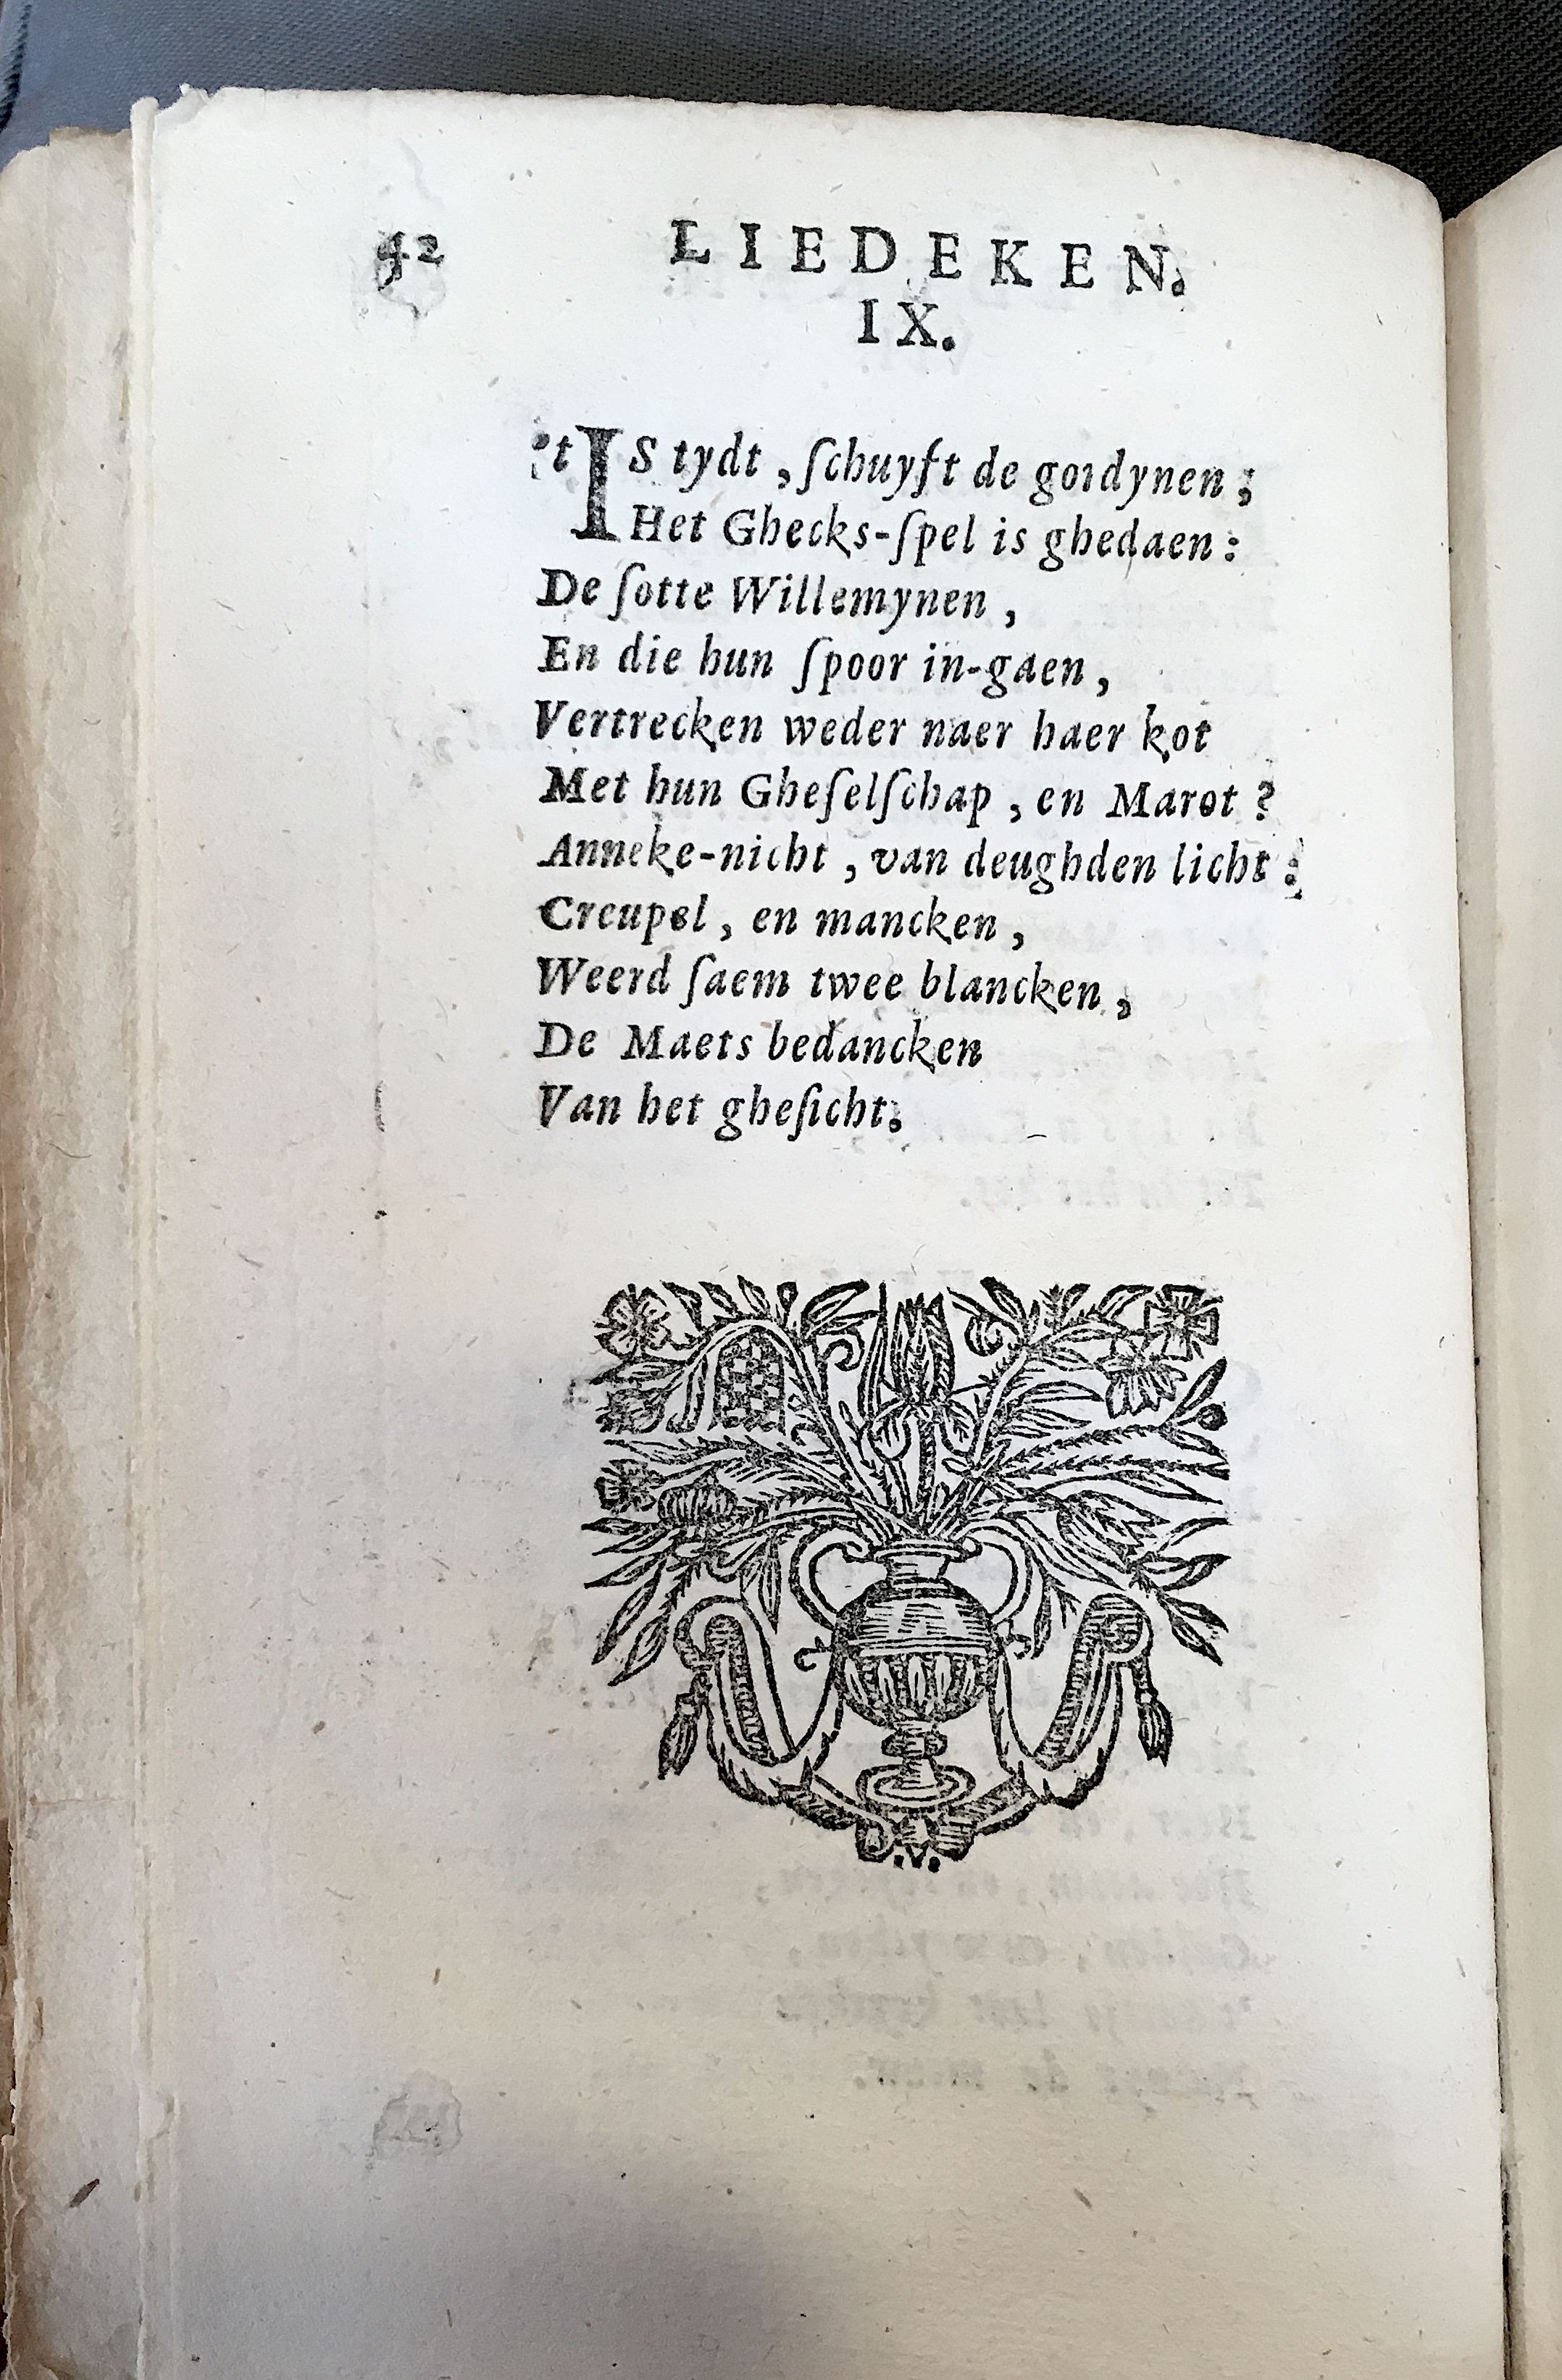 42 LIEDEKEN.
IX.
't IS tydt, ſchuyft de gordynen;
Het Ghecks-ſpel is ghedaen:
De ſotte Willemynen,
En die hun ſpoor in-gaen,
Vertrecken weder naer haer kot
Met hun Gheſelſchap, en Marot?
Anneke-nicht, van deughden licht:
Creupel, en mancken,
Weerd ſaem twee blancken,
De Maets bedancken
Van het gheſicht.